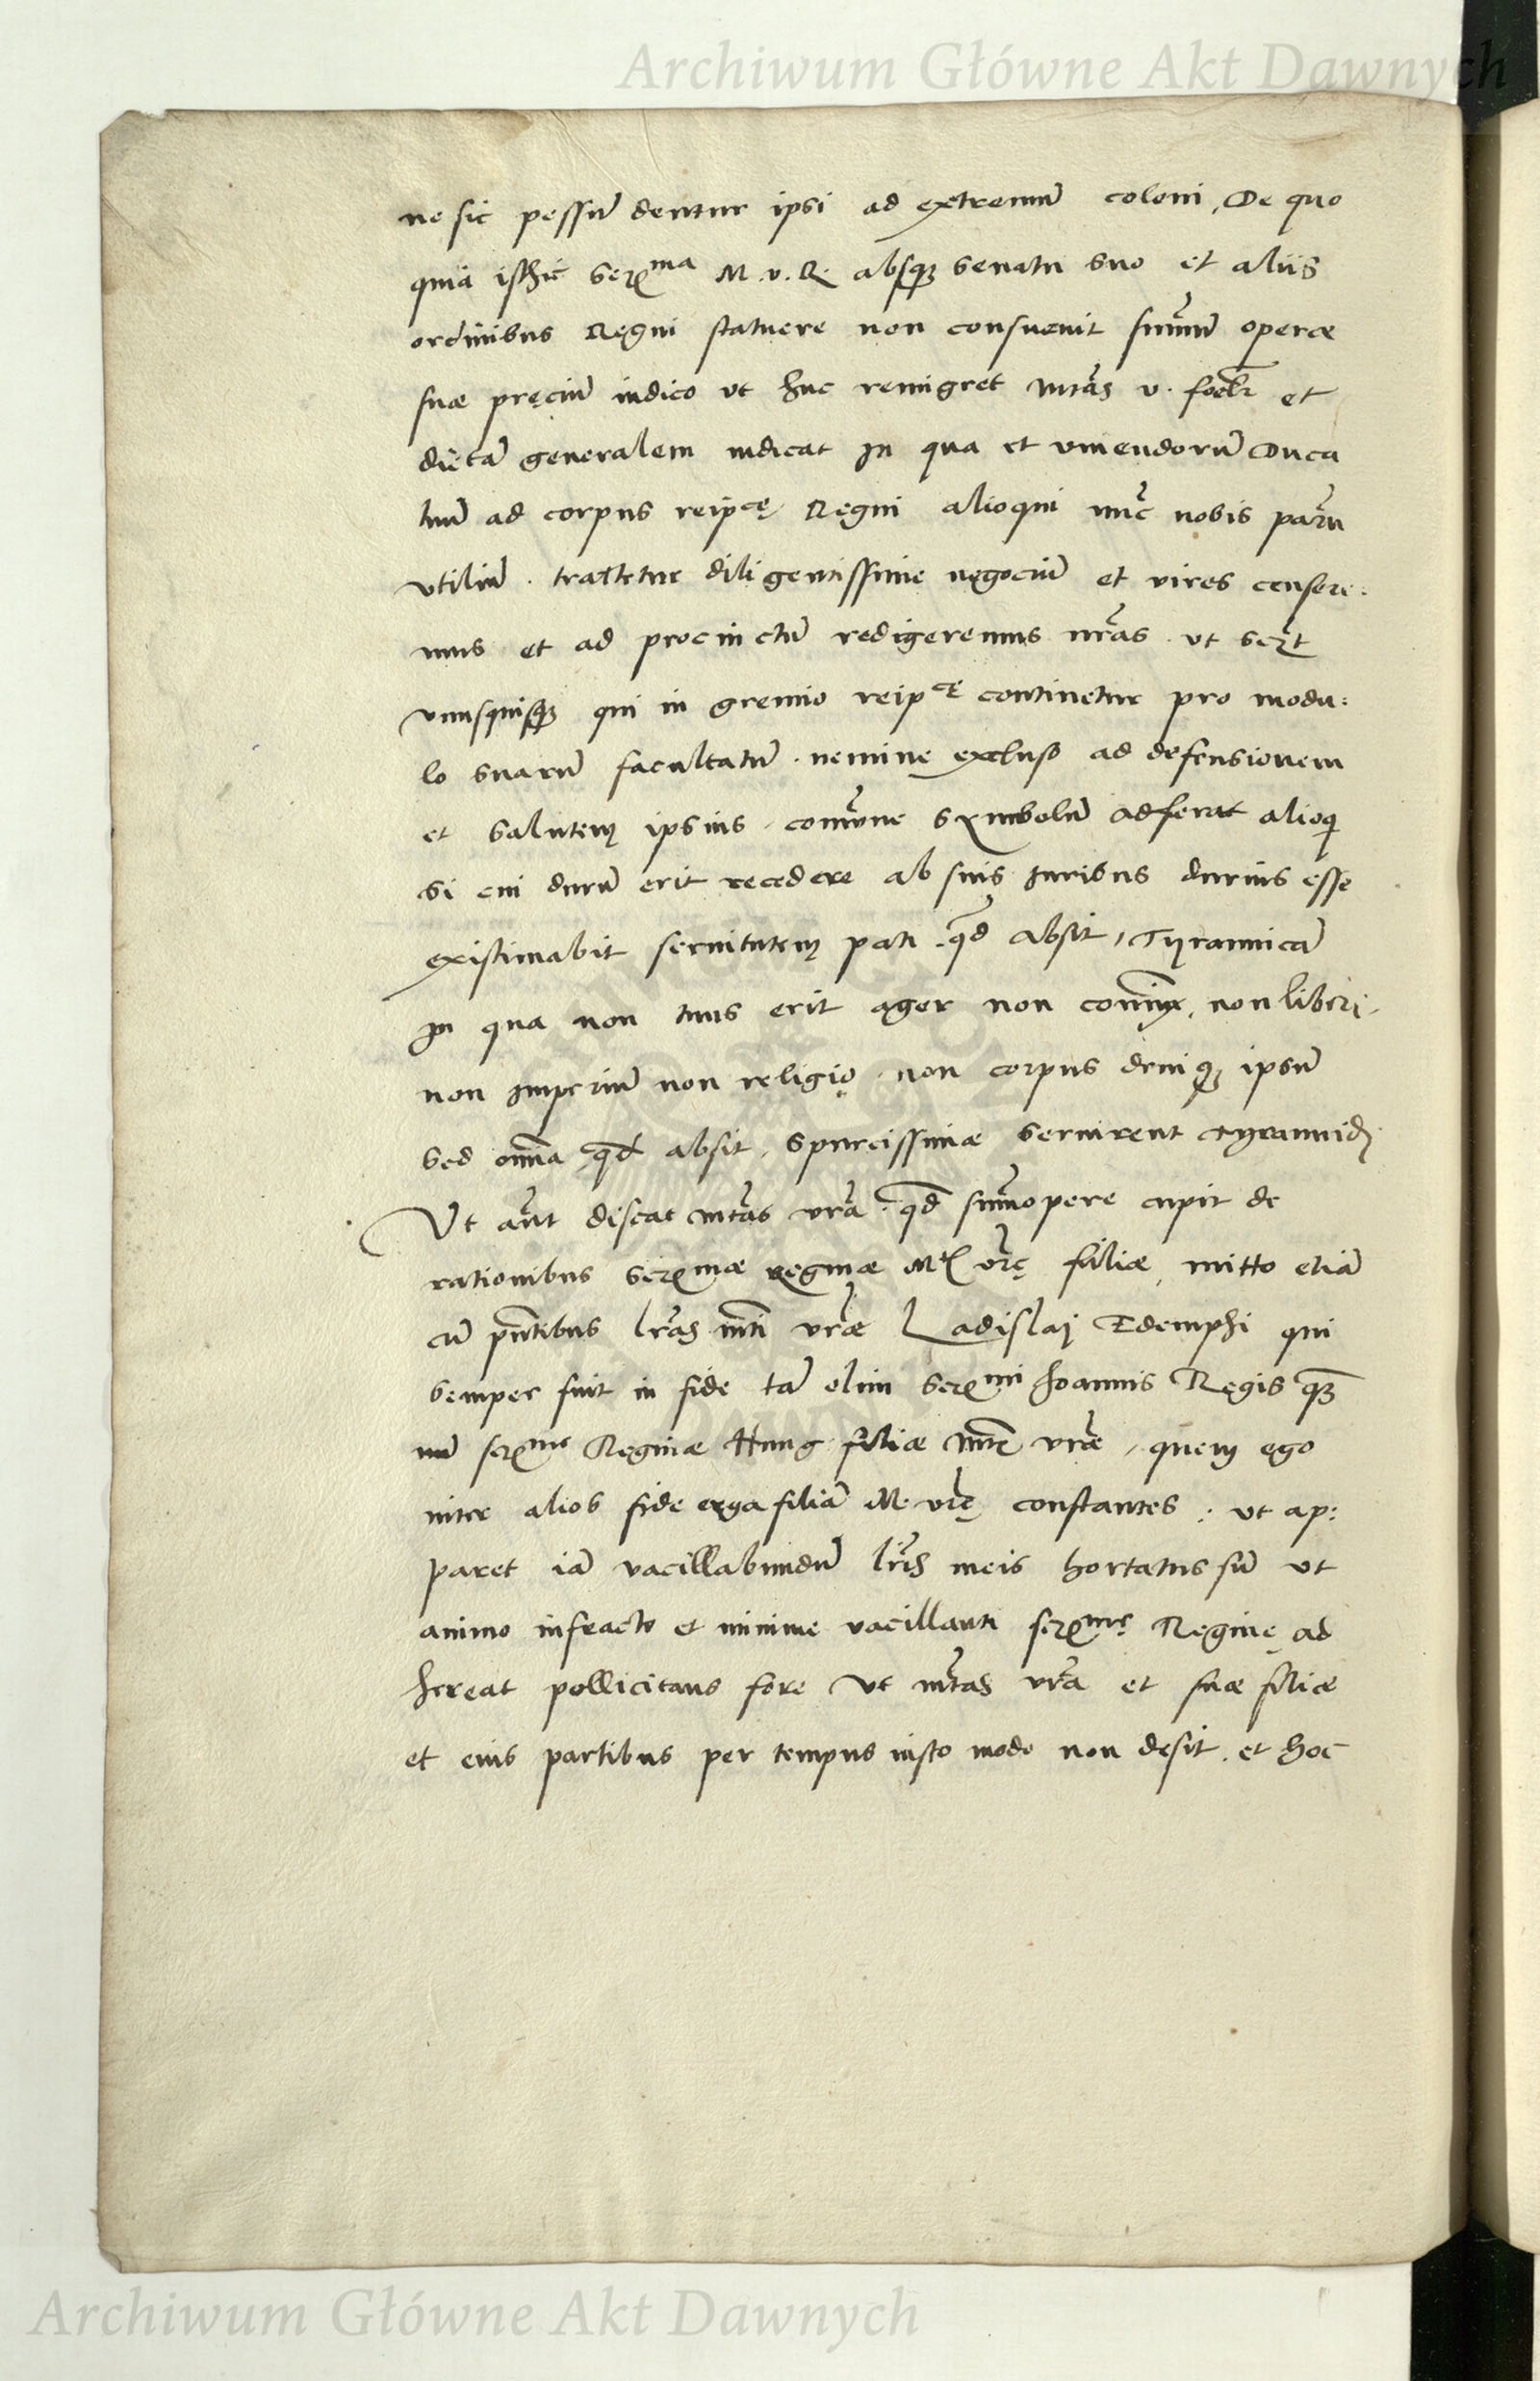 Archiwum Główne Akt Dawnych
ne sic pessũ dentur ipsi ad extremũ coloni, De quo
quia isthic Serᵐᵃ M. v. R. absqꝫ senatu suo et aliis
ordinibus Regni statuere non consuevit sum̃ũ operae
suae pręciũ iudico ut huc remigret Mtãs v. foelr̃ et
dietã generalem indicat In qua et uniendorũ Duca
tuũ ad corpus reipᶜę Regni alioqui nũc nobis parũ
utiliũ. tractetur diligentissime negociũ et vires censere:
mus et ad procinctũ redigeremus nr̃as. ut ser̃t
unusquisqꝫ qui in gremio reipᶜę continetur pro modu:
lo suarũ facultatũ. nemine excluso ad defensionem
et salutem ipsius, com̃une symbolũ adferat alioq
si cui durũ erit recedere ab suis Iuribus durius esse
existimabit servitutem pati. qd̃ absit, Tyrannicã
In qua non tuus erit ager non coniũx, non liberi,
non Imperiũ non religio. non corpus deniqꝫ ipsũ
sed om̃ia qd̃ absit, spurcissimae servirent Tyrannidi
Ut aũt discat Mtãs vr̃a. qd̃ sum̃opere cupit de
rationibus Serᵐae reginae Mt vr̃ę filiae, mitto etiã
cũ pñtibus lr̃as mti vr̃ae Ladislaj Edemphi qui
semper fuit in fide tã olim Serᵐⁱ Joannis Regis qꝫ̃
nũ serᵐᵉ Reginae Hung filiae Mtis vr̃ae, quem ego
inter alios fide erga filiã M. vr̃ę constantes: ut ap:
paret iã vacillabundũ lr̃is meis hortatus sũ ut
animo infracto et minime vacillanti serᵐᵉ Reginę ad
hereat pollicitans fore Ut mtãs vr̃a et suae filiae
et eius partibus per tempus iusto modo non desit. et hoc
Archiwum Główne Akt Dawnych